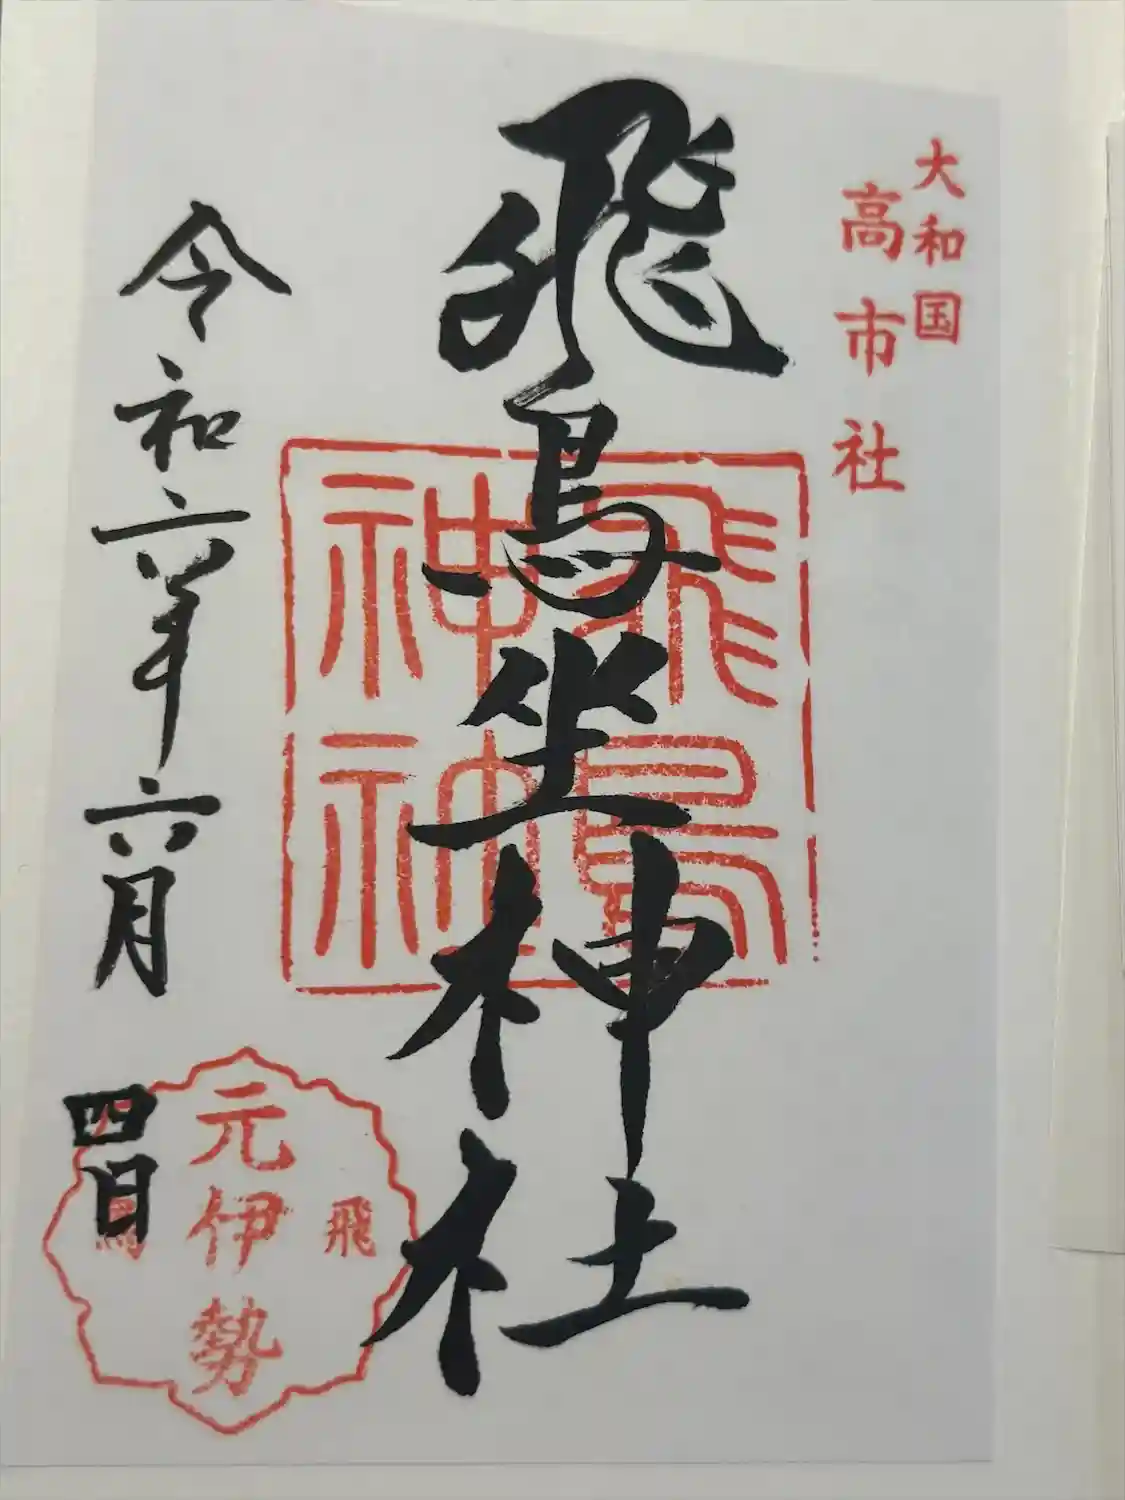 大和国
高市社
飛鳥坐神社
飛鳥
神社
令和六年六月
四日
飛鳥
元伊勢